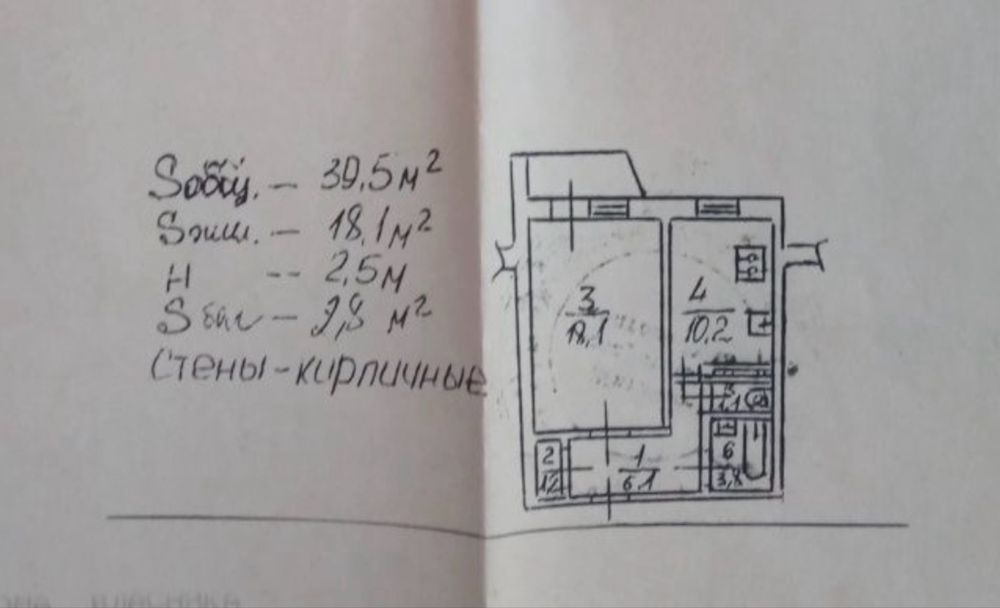 Sобщ. – 39,5 м²
Sжил. – 18,1 м²
H -- 2,5 м
S бал – 2,8 м²
Стены - кирпичные
3
18,1
4
10,2
5
1,1
2
1,2
1
6,1
6
3,8